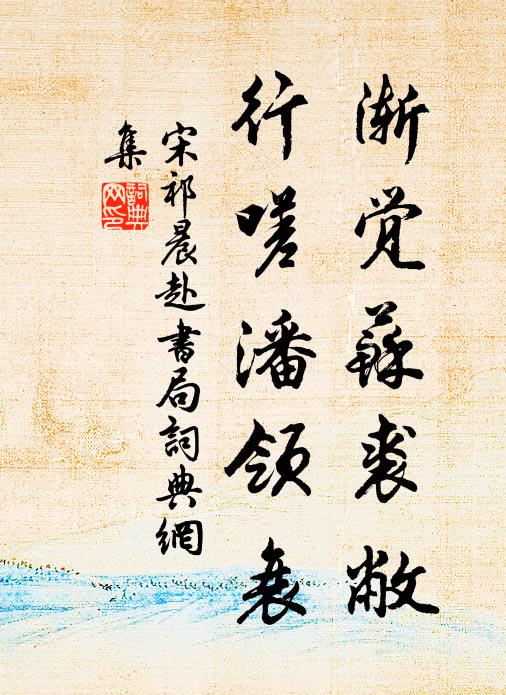 渐觉蘇裘敝
行嗟潘领衰
宋祁晨赴書局詞典網
集
詞典
网印